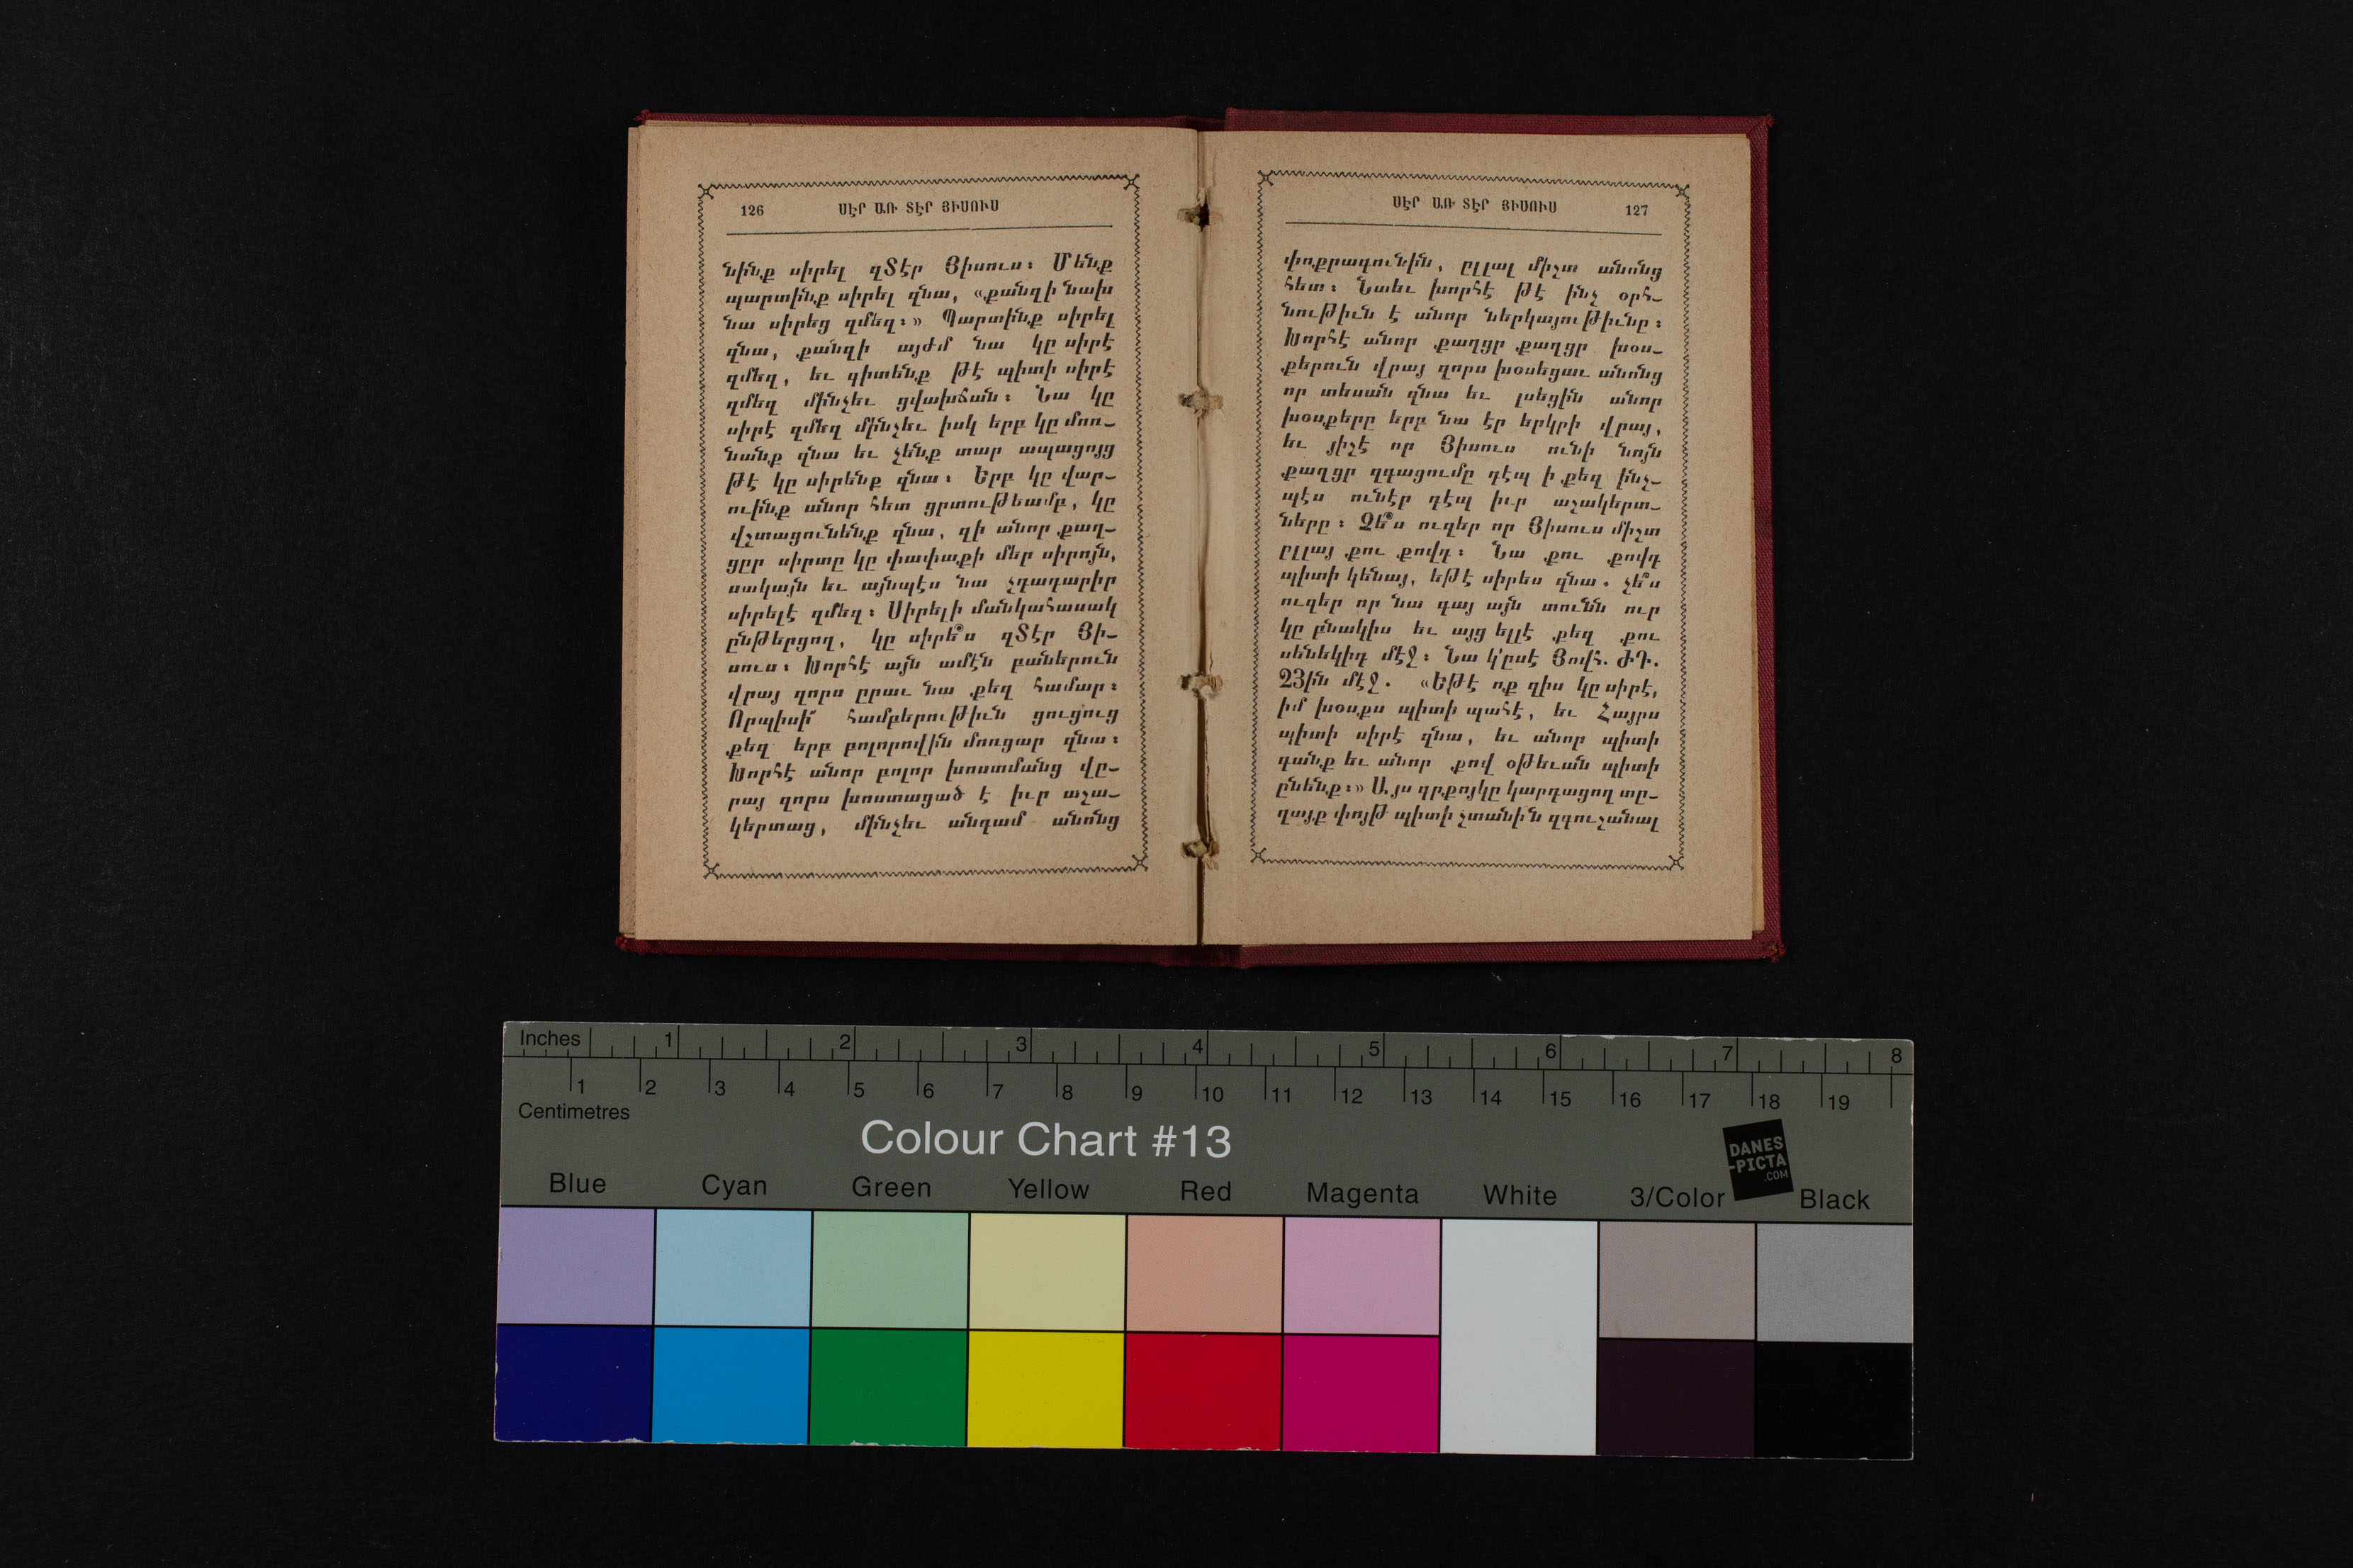 126 ՍԷՐ ԱՌ ՏԷՐ ՅԻՍՈՒՍ
նինք սիրել զՏէր Յիսուս։ Մենք
պարտինք սիրել զնա, «քանզի նախ
նա սիրեց զմեզ։» Պարտինք սիրել
զնա, քանզի այժմ նա կը սիրէ
զմեզ, եւ գիտենք թէ պիտի սիրէ
զմեզ մինչեւ ցվախճան։ Նա կը
սիրէ զմեզ մինչեւ իսկ երբ կը մոռ-
նանք զնա եւ չենք տար ապացոյց
թէ կը սիրենք զնա։ Երբ կը վար-
ուինք անոր հետ ցրտութեամբ, կը
վշտացունենք զնա, զի անոր քաղ-
ցըր սիրտը կը փափաքի մեր սիրոյն,
սակայն եւ այնպէս նա չդադարիր
սիրելէ զմեզ։ Սիրելի մանկահասակ
ընթերցող, կը սիրե՞ս զՏէր Յի-
սուս։ Խորհէ այն ամէն բաներուն
վրայ զորս ըրաւ նա քեզ համար։
Որպիսի՜ համբերութիւն ցուցուց
քեզ երբ բոլորովին մոռցար զնա։
Խորհէ անոր բոլոր խոստմանց վը-
րայ զորս խոստացած է իւր աշա-
կերտաց, մինչեւ անգամ անոնց
ՍԷՐ ԱՌ ՏԷՐ ՅԻՍՈՒՍ 127
փոքրագունին, ըլլալ միշտ անոնց
հետ։ Նաեւ խորհէ թէ ինչ օրհ-
նութիւն է անոր ներկայութիւնը։
Խորհէ անոր քաղցր քաղցր խօս-
քերուն վրայ զորս խօսեցաւ անոնց
որ տեսան զնա եւ լսեցին անոր
խօսքերը երբ նա էր երկրի վրայ,
եւ յիշէ որ Յիսուս ունի նոյն
քաղցր զգացումը դէպ ի քեզ ինչ-
պէս ունէր դէպ իւր աշակերտ-
ները։ Չե՞ս ուզեր որ Յիսուս միշտ
ըլլայ քու քովդ։ Նա քու քովդ
պիտի կենայ, եթէ սիրես զնա. չե՞ս
ուզեր որ նա գայ այն տունն ուր
կը բնակիս եւ այց ելլէ քեզ քու
սենեկիդ մէջ։ Նա կ'ըսէ Յովհ. ԺԴ.
23ին մէջ. «Եթէ ոք զիս կը սիրէ,
իմ խօսքս պիտի պահէ, եւ Հայրս
պիտի սիրէ զնա, եւ անոր պիտի
գանք եւ անոր քով օթեւան պիտի
ընենք։» Այս գրքոյկը կարդացող տը-
ղայք փոյթ պիտի չտանին զգուշանալ
Inches 1 2 3 4 5 6 7 8
1 2 3 4 5 6 7 8 9 10 11 12 13 14 15 16 17 18 19
Centimetres
Colour Chart #13
DANES
-PICTA
.COM
Blue Cyan Green Yellow Red Magenta White 3/Color Black